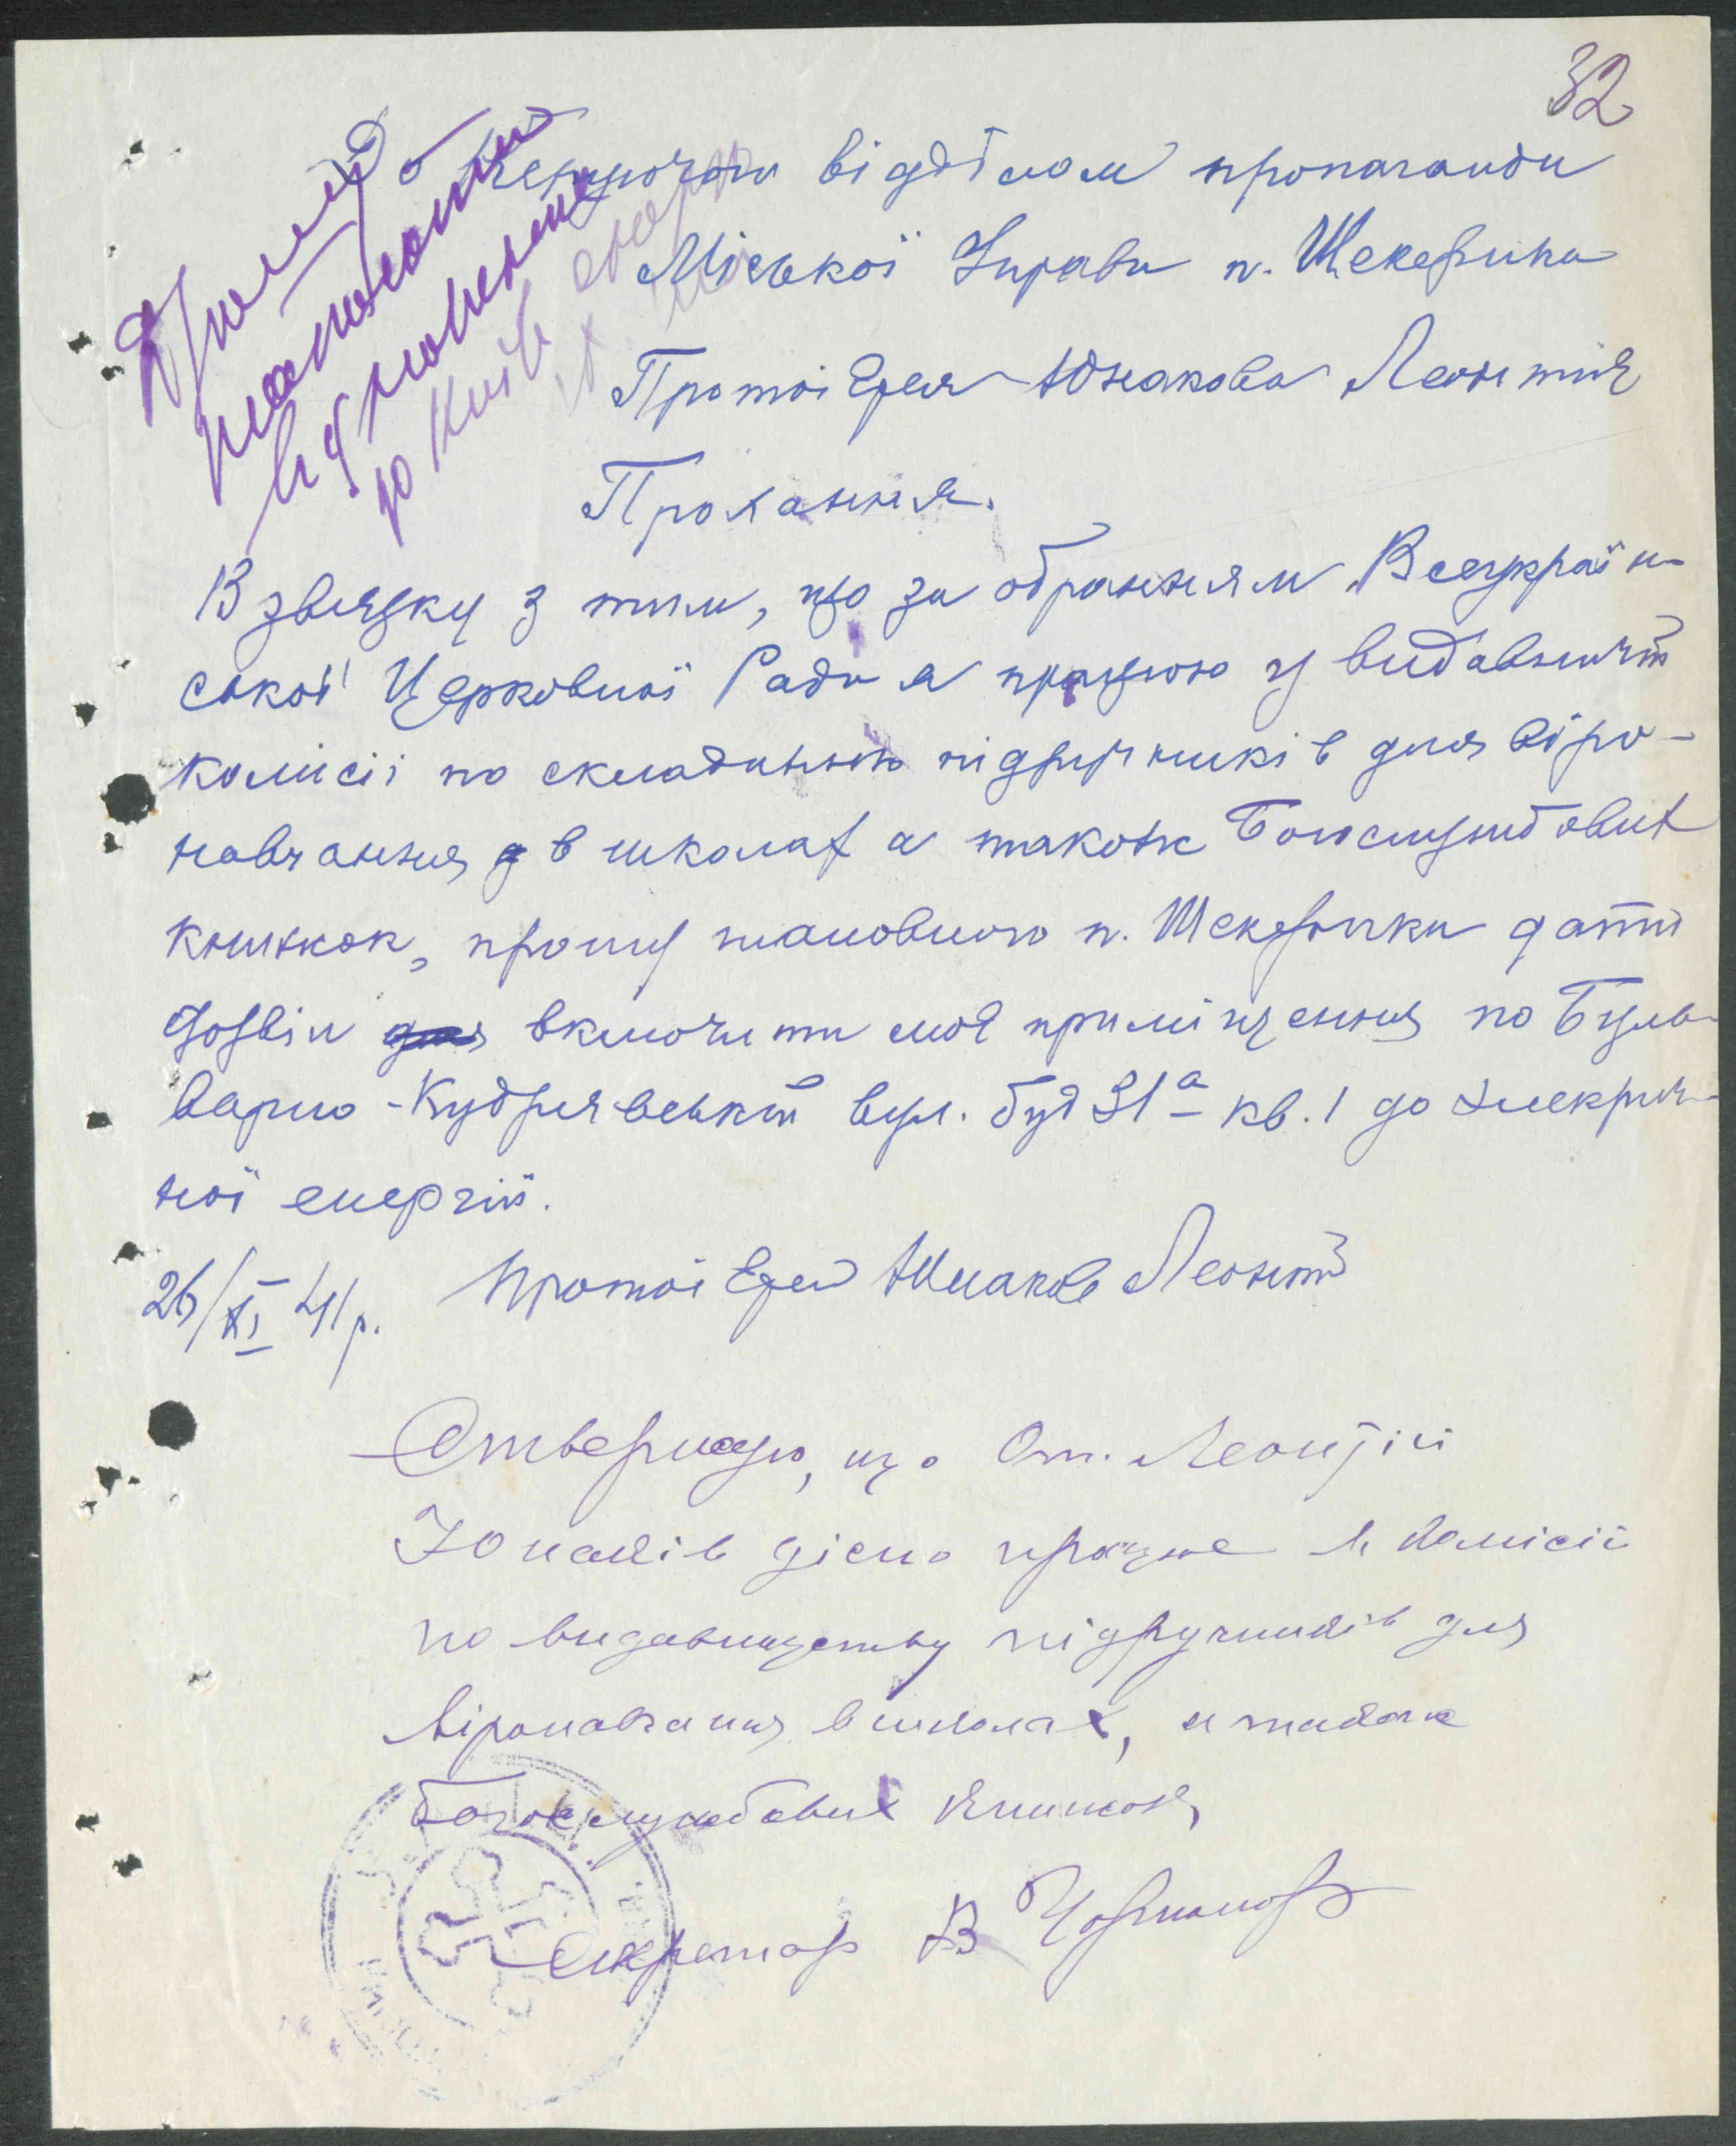 32
До Керуючого відділом пропаганди
Міської Управи п. Шекерика
Протоієрея Юнакова Леонтія
Прохання.
В звязку з тим, що за обранням Всеукраїн-
ської Церковної Ради я працюю у видавничій
комісії по складанню підручників для віро-
навчання в школах а також Богослужбових
книжок, прошу шановного п. Шекерика дати
дозвіл включити моє приміщення по Буль-
варно-Кудрявській вул. буд 31а кв. 1 до електрич-
ної енергії.
26/XI 41 р. Протоієрей Юнаков Леонтій
Стверджую, що От. Леонтій
Юнаків дісно працює в комісії
по видавництву підручників для
віронавчання в школах, а також
богослужбових книжок
Секретар В